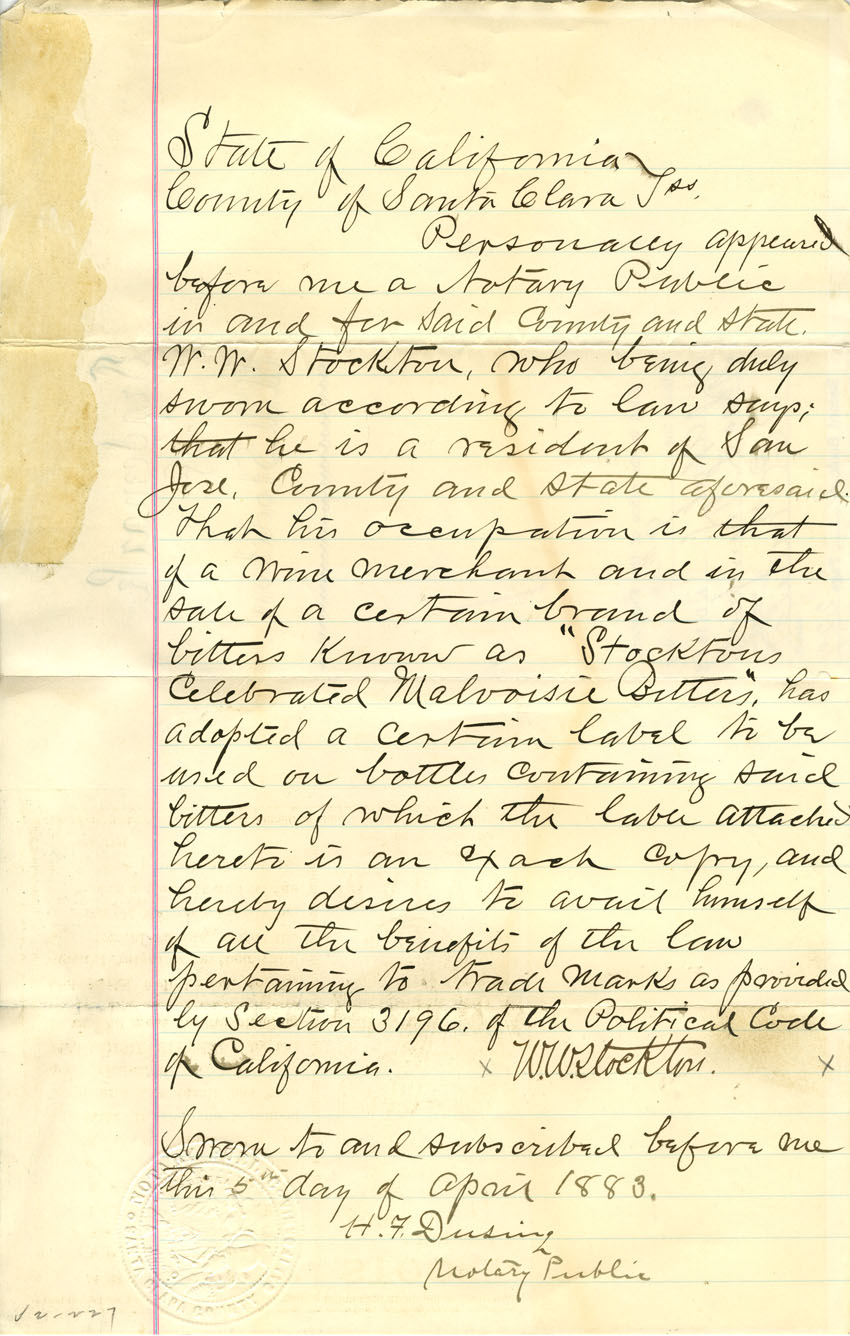 State of California
County of Santa Clara } ss.
Personally appeared
before me a Notary Public
in and for said County and State.
W. W. Stockton, who being duly
sworn according to law says;
that he is a resident of San
Jose, County and State aforesaid.
That his occupation is that
of a wine merchant and in the
sale of a certain brand of
bitters known as "Stocktons
Celebrated Malvoisie Bitters", has
adopted a certain label to be
used on bottles containing said
bitters of which the label attached
hereto is an exact copy, and
hereby desires to avail himself
of all the benefits of the law
pertaining to trade marks as provided
by Section 3196. of the Political Code
of California. x W.W. Stockton. x
Sworn to and subscribed before me
this 5th day of April 1883.
H. F. Dusing
Notary Public